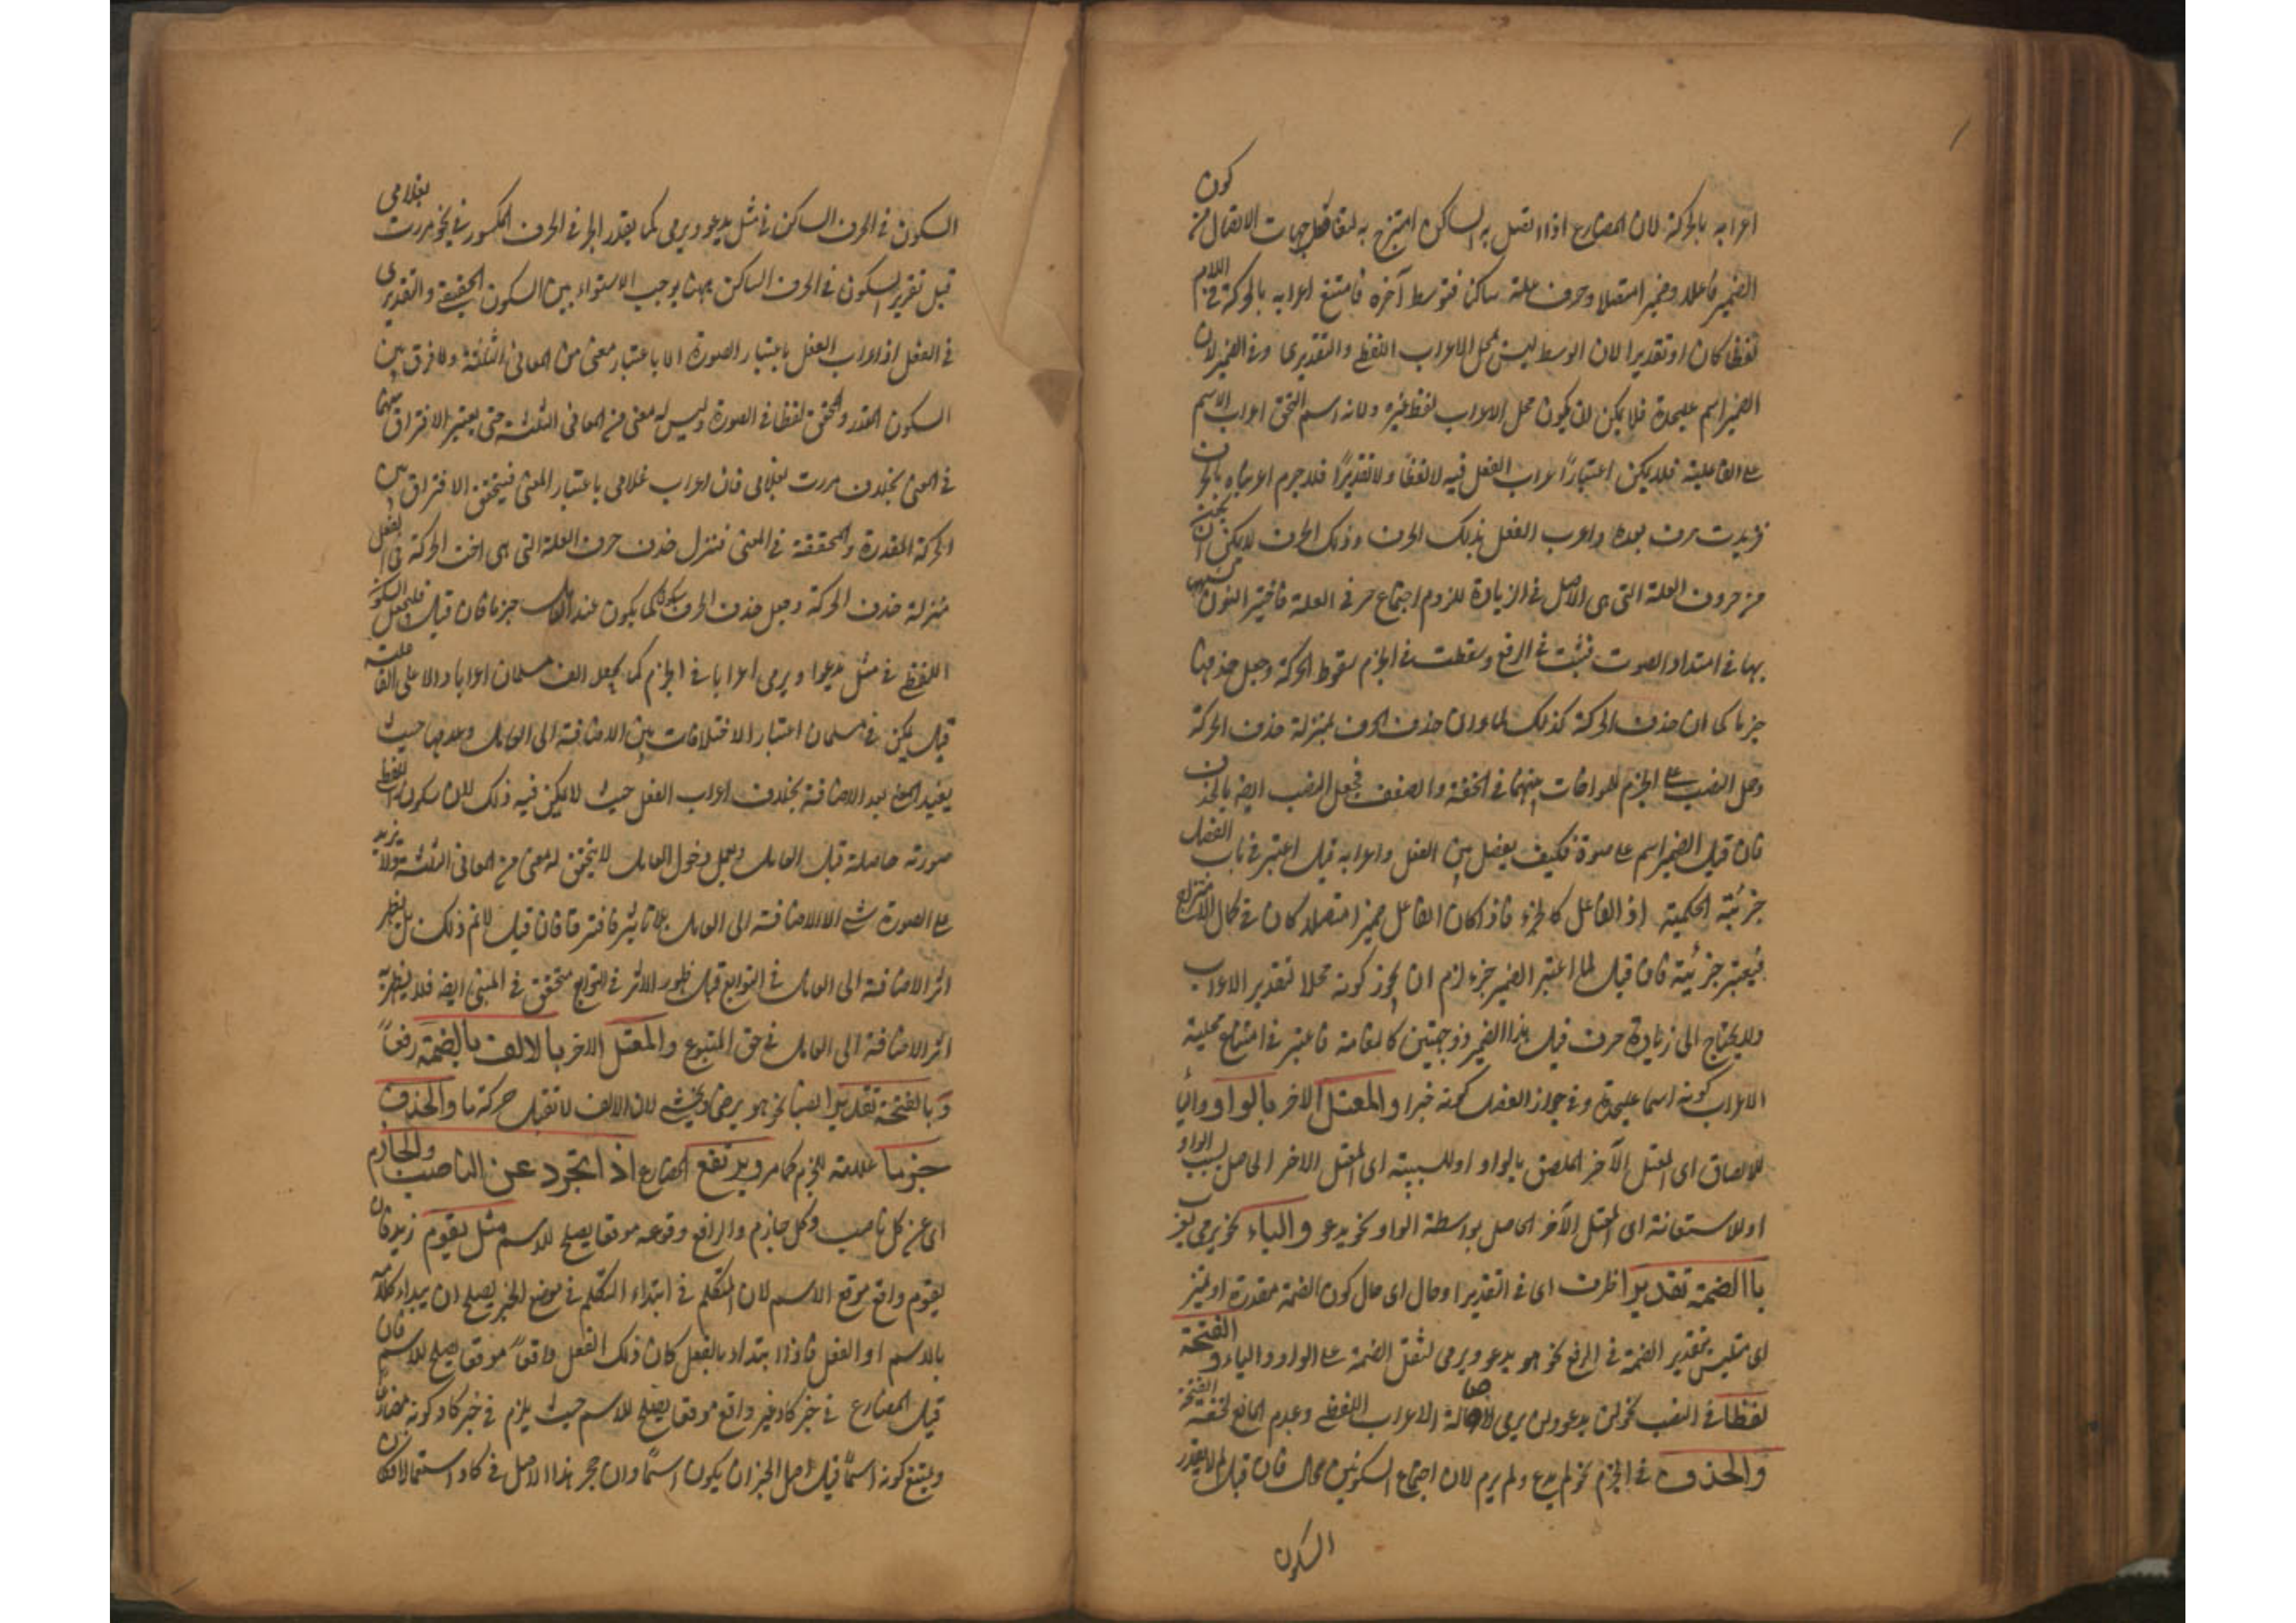 اعرابه بالحركة لان المضارع اذا اتصل به الساكن امتزج به جهات الاتصال من كون
الضمير فاعلا وضميرا متصلا وحرف علة ساكنا فتوسط آخره فامتنع اعرابه بالحركة في اللام
لفظا كان او تقديرا لان الوسط ليس محل الاعراب اللفظي والتقديري وفي الضمير لان
الضمير اسم عليحدة فلا يمكن ان يكون محل الاعراب لفظ غيره ولانه اسم استحق اعراب الاسم
على الفاعلية فلا يمكن اعتبار اعراب الفعل فيه لا لفظا ولا تقديرا فلا جرم اعربناه بالحرف
فزيدت حرف بعده واعرب الفعل بذلك الحرف وذلك الحرف لا يمكن ان يكون
من حروف العلة التى هى الاصل في الزيادة للزوم اجتماع حرفى العلة فاختير النون
بها في امتداد الصوت فيثبت في الرفع وسقطت في الجزم سقوط الحركة وجعل حذفها
جزما كما ان حذف الحركة كذلك لما ان حذف الحرف بمنزلة حذف الحركة
وحمل النصب على الجزم للمواخات بينهما في الخفة والضعف فجعل النصب ايضا بالحذف
فان قيل الضمير اسم على حدة فكيف يفصل بين الفعل واعرابه قيل اعتبر في باب الفصل
جزئيته الحكمية اذ الفاعل كالجزء فاذا كان الفاعل ضميرا متصلا كان في كمال الامتزاج
فيعتبر جزئيته فان قيل لما اعتبر الضمير جزء لزم ان يجوز كونه محلا لتقدير الاعراب
ولا يحتاج الى زيادة حرف قيل هذا الضمير ذو جهتين فاعتبر في امتناع محلية
الاعراب كونه اسما عليحدة وفي جواز الفصل كونه والمعتل الاخر بالواو والياء
للالصاق اى المعتل الآخر الملصق بالواو او للسببية اى المعتل الاخر الحاصل بسبب الواو
او للاستعانة اى المعتل الآخر الحاصل بواسطة الواو نحو يدعو والياء نحو يرمى
بالضمة تقديرا ظرف اى في التقدير او حال اى حال كون الضمة مقدرة او تميز
اى متلبس بتقدير الضمة في الرفع نحو هو يدعو ويرمى لثقل الضمة على الواو والياء والفتحة
لفظا في النصب نحو لن يدعو ولن يرمى لاصالة الاعراب اللفظى وعدم المانع لخفة الفتحة
والحذف في الجزم نحو لم يدع ولم يرم لان اجتماع السكونين محال فان قيل لم لا يقدر
السكون
السكون في الحرف الساكن في مثل يدعو ويرمى كما يقدر الجر في الحرف المكسور في نحو مررت بغلامى
قيل تقدير السكون في الحرف الساكن يوجب الاستواء بين السكون الحقيقى والتقديرى
في الفعل اذ اعراب الفعل باعتبار الصورة لا باعتبار معنى من المعانى الثلثة ولا فرق بين
السكون المقدر والمحقق لفظا في الصورة وليس له معنى من المعانى الثلثة حتى يعتبر الافتراق بينهما
في المعنى بخلاف مررت بغلامى فان اعراب غلامى باعتبار المعنى فيتحقق الافتراق بين
الحركة المقدرة والمحققة في المعنى فنزل حذف حرف العلة التى هى اخت الحركة في الفعل
منزلة حذف الحركة وجعل حذف الحرف كما يكون عند جزما فان قيل فليجعل السكون
اللفظى في مثل يدعوا ويرمى اعرابا في الجزم كما يجعل الف مسلمان اعرابا دالا على الفاعلية
قيل يمكن في مسلمان اعتبار الاختلافات بين الاضافة الى العامل وعدمها حيث
يفيد المعنى بعد الاضافة بخلاف اعراب الفعل حيث لا يمكن فيه ذلك لان سكونه اللفظى
صورته حاصلة قبل العامل وبعد دخول العامل لا يتحقق له معنى من المعانى الثلثة ولا يزيد
على الصورة شئ الا الاضافة الى العامل بلا تاثير فافترقا فان قيل لا نم ذلك بل يظهر
اثر الاضافة الى العامل في التوابع قيل ظهور الاثر في التوابع متحقق في المبنى ايضا فلا يظهر به
اثر الاضافة الى العامل في حق المتبوع والمعتل الاخر بالالف بالضمة رفعا
وبالفتحة تقديرا نصبا نحو هو يرضى ويخشى لان الالف لا تقبل حركة ما والحذف
جزما علامة للجزم كما مر ويرتفع المضارع اذا تجرد عن الناصب والجازم
اى عن كل ناصب وكل جازم والرافع وقوعه موقعا يصلح للاسم مثل يقوم زيد فان
يقوم واقع موقع الاسم لان المتكلم في ابتداء التكلم في موضع الخبر يصلح ان يبداء كلامه
بالاسم او الفعل فاذا ابتداء بالفعل كان ذلك الفعل واقعا موقعا يصلح للاسم فان
قيل المضارع في خبر كاد غير واقع موقعا يصلح للاسم حيث يلزم في خبر كاد كونه مضارعا
ويمتنع كونه اسما قيل اصل الخبر ان يكون اسما وان هجر هذا الاصل في كاد استعمالا فكان